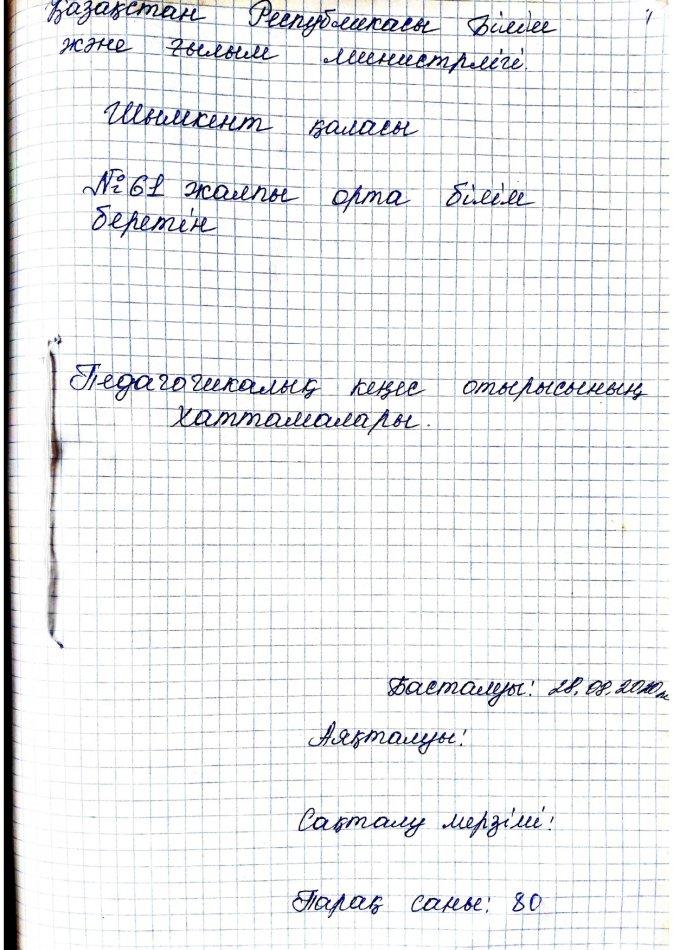 Қазақстан Республикасы Білім
1
және ғылым министрлігі.
Шымкент қаласы
№61 жалпы орта білім
беретін
Педагогикалық кеңес отырысының
хаттамалары.
Басталуы: 28.08.2020ж
Аяқталуы:
Сақталу мерзімі:
Парақ саны: 80